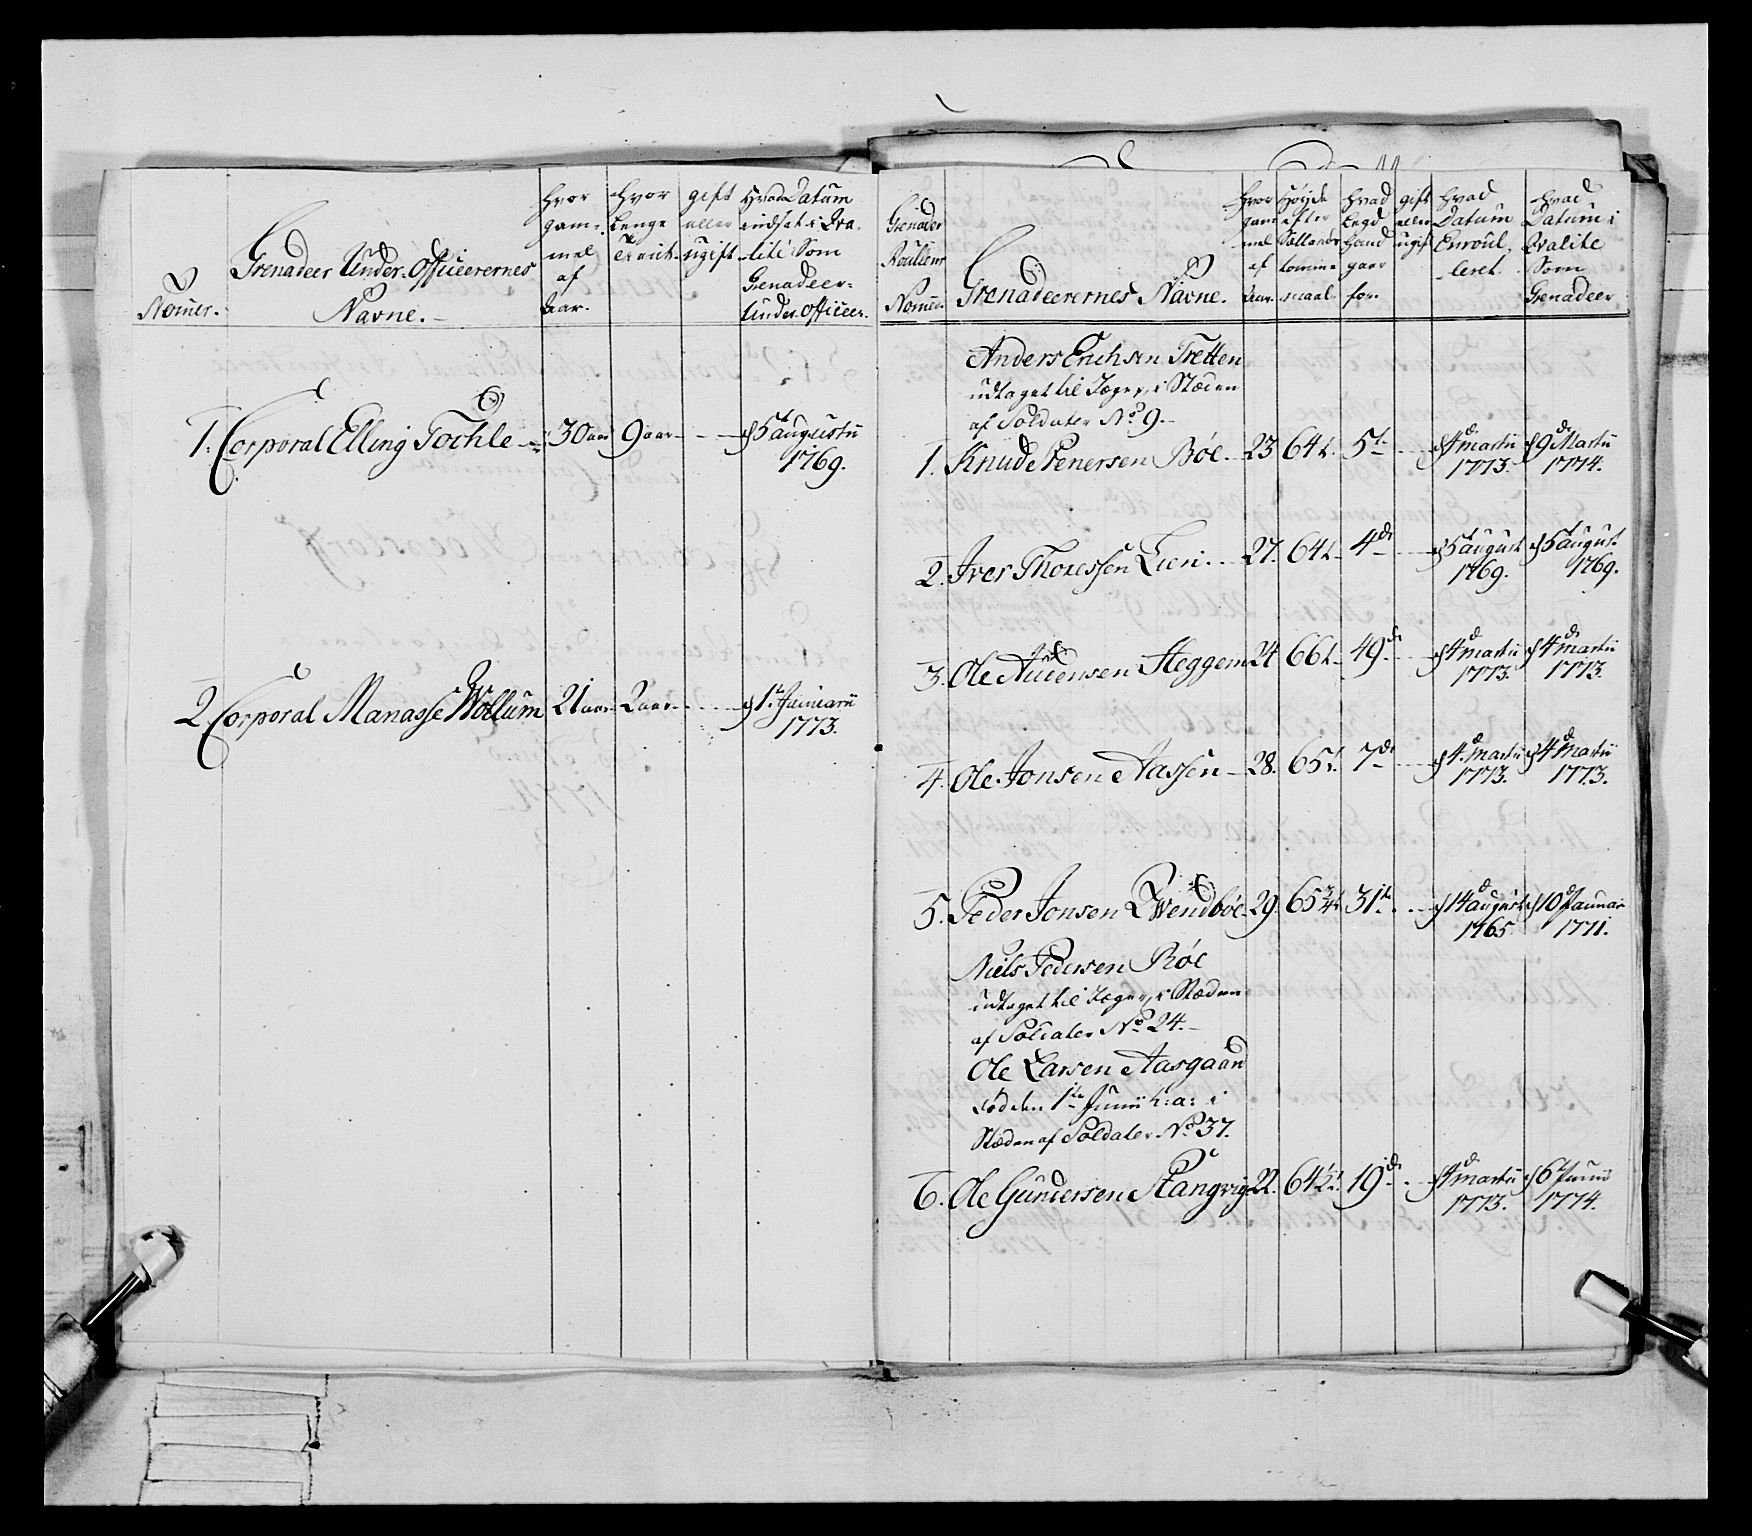 Nomer.
Grenadeer Under-Officerernes
Navne.
Hvor
gam-
mel
af
Aar.
Hvor
Lenge
tient.
gift
eller
ugift
Hvad Datum
indsat i Qva-
lité Som
Grenadeer-
Under-officeer.
1. Corporal Elling Tochle 30 aar 9 aar d 5t augustii
1769.
2. Corporal Manasse Wollum 21 aar 2 aar d 1t Januarii
1773.
Grenader
Roullens
Nomer.
Grenadeerernes Navne.
Hvor
gam
mel
af
Aar.
Høyde
efter
Sollands
tomme
maal.
Hvad
Legd
hand
gaar
for.
gift
eller
ugift
Hvad
Datum
Enroul-
leret.
Hvad
Datum i
Qvalite
Som
Grenadeer
Anders Erichsen Tretten
udtaget til Jæger, i Stæden
af Soldater No 9.
1. Knud Penersen Bøe 23 64 t. 5te d 4de martii d 9de Martii
1773. 1774.
2. Iver Thoressen Lien 27. 64 t. 4de d 5t august d 5t august
1769. 1769.
3. Ole Audensen Heggem 24 66 t. 49de d 4de martii d 4de martii
1773. 1773.
4. Ole Jonsen Aassen 28. 65 t. 7de d 4de martii d 4de Martii
1773. 1773.
5. Peder Jonsen Qvendbøe 29. 65 3/4 t. 31te d 14de august d 10de Januar
1765. 1771.
Niels Pedersen Bøe
udtaget til Jæger, i Stæden
af Soldater No 24.
Ole Larsen Aasgaard
død den 1te Junii h: a: i
Stæden af Soldater No 37.
6. Ole Gundersen Stangvig 22. 64 1/2 t. 19de d 4de martii d 6t Junii
1773. 1774.